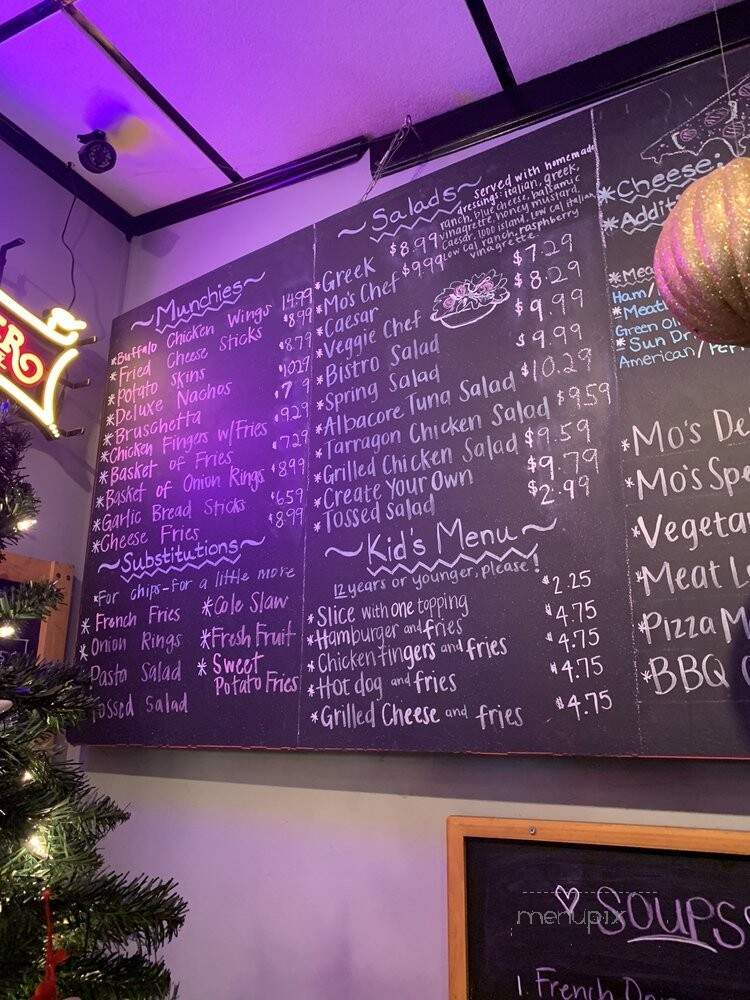 ER
Munchies
*Buffalo Chicken Wings 14.99
*Fried Cheese Sticks $8.99
*Potato Skins $8.79
*Deluxe Nachos $10.29
*Bruschetta
*Chicken Fingers w/Fries $9.29
*Basket of Fries $7.29
*Basket of Onion Rings $8.99
*Garlic Bread Sticks $6.59
*Cheese Fries $8.99
Substitutions
*For chips-For a little more
*French Fries
*Onion Rings
Pasta Salad
Tossed Salad
*Cole Slaw
*Fresh Fruit
*Sweet
Potato Fries
Salads
served with homemade
dressings: italian, greek,
ranch, blue cheese, balsamic
vinagrette, honey mustard,
Caesar, 1000 island, low cal italian
low cal ranch, raspberry
vinagrette
*Greek $8.99
*Mo's Chef $9.99
*Caesar $7.29
*Veggie Chef $8.29
*Bistro Salad $9.99
*Spring Salad $9.99
*Albacore Tuna Salad $10.29
*Tarragon Chicken Salad $9.59
*Grilled Chicken Salad $9.59
*Create Your Own $9.79
*Tossed Salad $2.99
Kid's Menu
12 years or younger, please!
*Slice with one topping $2.25
*Hamburger and fries $4.75
*Chicken fingers and fries $4.75
*Hot dog and fries $4.75
*Grilled Cheese and fries $4.75
*Cheese:
*Additi
*Mea
Ham/
*Meatl
Green Ol
*Sun Dr
American/Pep
*Mo's De
*Mo's Spe
*Vegeta
*Meat L
*Pizza M
*BBQ
Soups
1. French
menupix